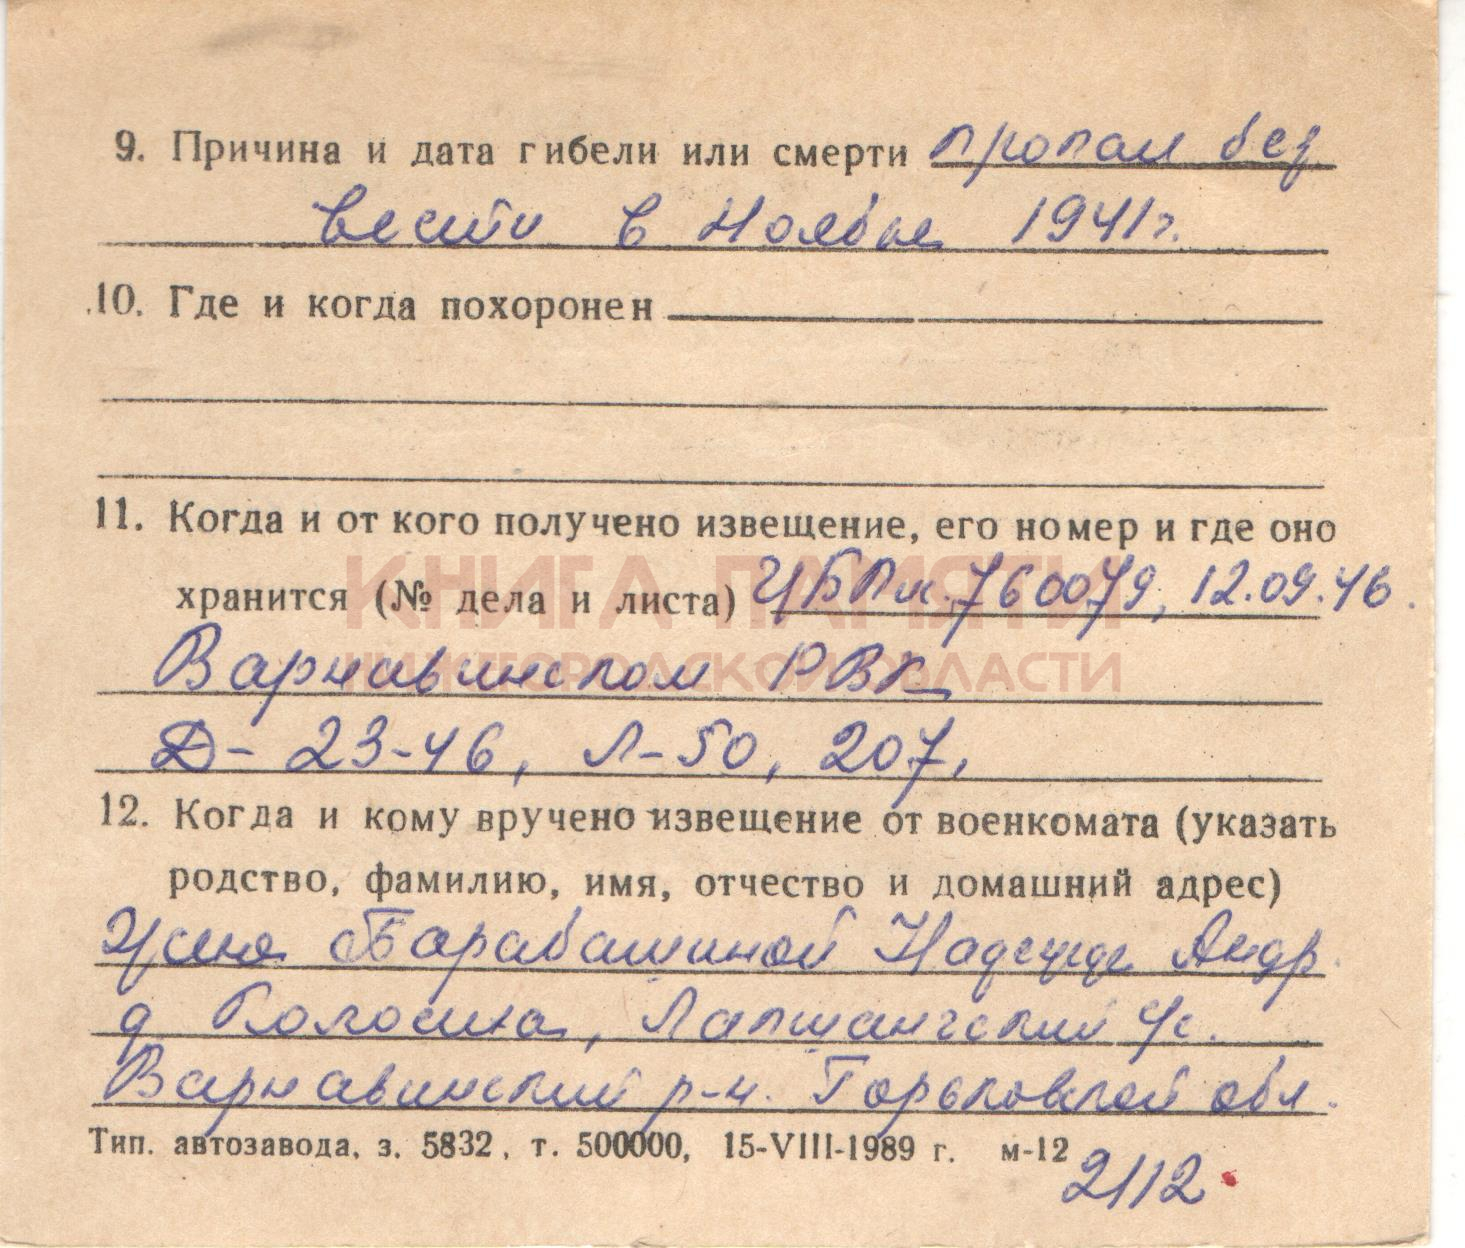 9. Причина и дата гибели или смерти пропал без
вести в Ноябре 1941г.
10. Где и когда похоронен
11. Когда и от кого получено извещение, его номер и где оно
КНИГА ПАМЯТИ
хранится (№ дела и листа) ЦБПк. 760079, 12.09.46.
НИЖЕГОРОДСКОЙ ОБЛАСТИ
Варнавинском РВК
Д- 23-46, Л-50, 207,
12. Когда и кому вручено извещение от военкомата (указать
родство, фамилию, имя, отчество и домашний адрес)
Жена Барабашиной Надежде Андр.
д Колосиха, Лапшангский с/с.
Варнавинский р-н. Горьковской обл.
Тип. автозавода, з. 5832, т. 500000, 15-VIII-1989 г. м-12
2112